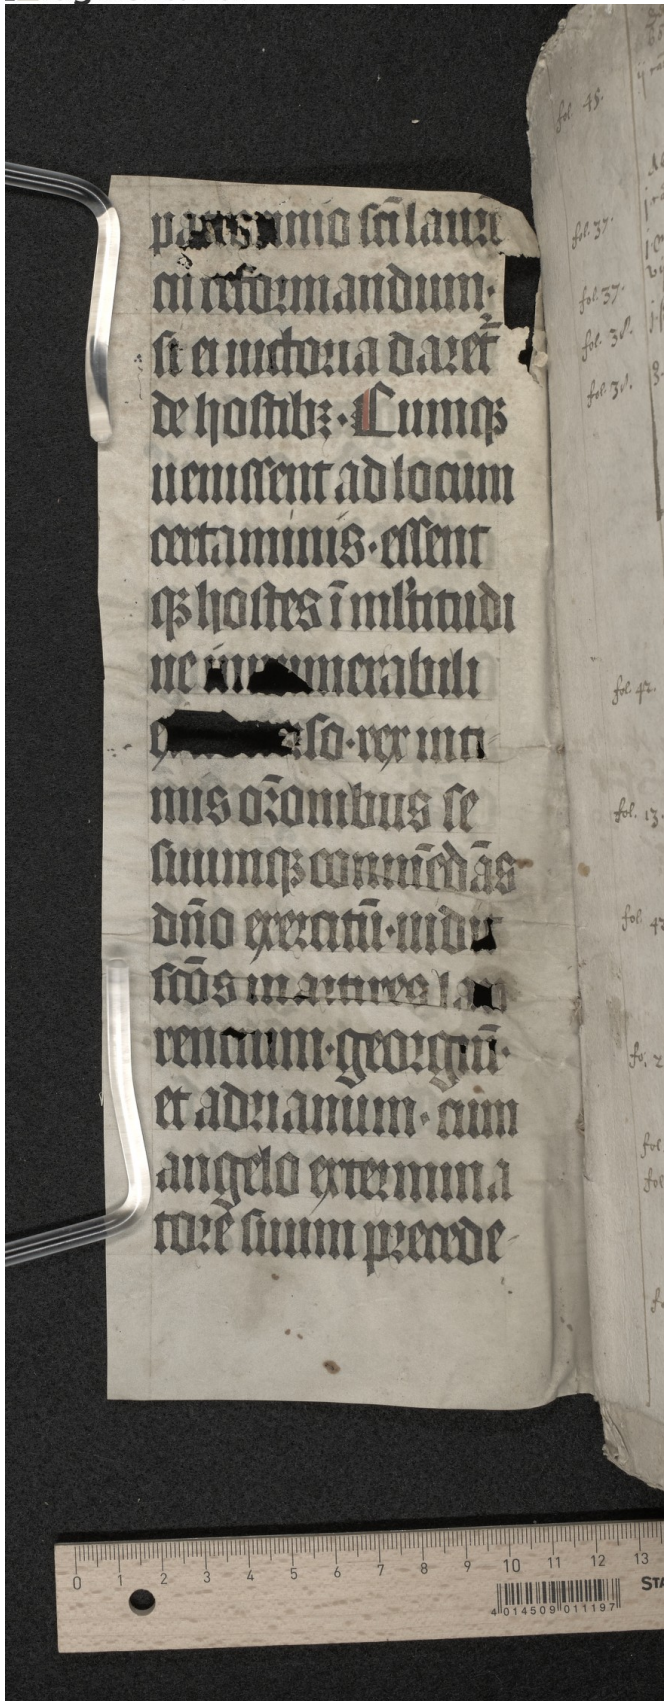 scī laure
cii reformandum·
si ei uictoria daret̄
de hostibꝫ · Cumqꝫ
uenissent ad locum
certaminis · essent
qꝫ hostes ī ml̄titudi
ne innumerabili
rex inti
mis or̄onibus se
suumqꝫ com̄ēdās
dn̄o exercitū · uidit
scōs martires lau
rencium · georgiū ·
et adrianum · cum
angelo extermina
torē suum precede
fol. 45.
fol. 37.
fol. 37.
fol. 38.
fol. 38.
fol. 42.
fol. 13.
0 1 2 3 4 5 6 7 8 9 10 11 12 13
4 014509 011197